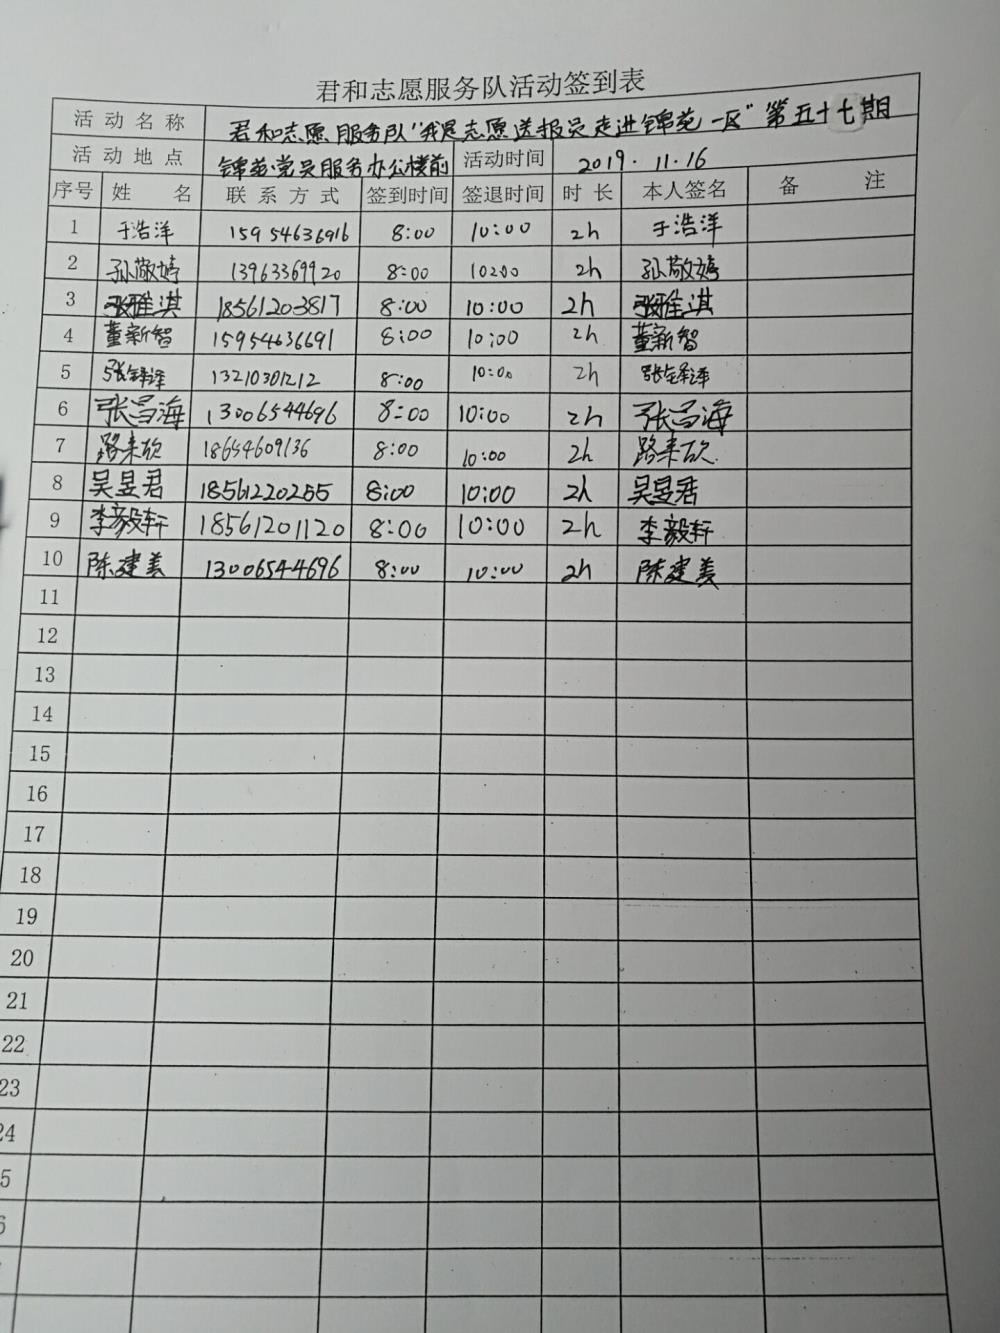 君和志愿服务队活动签到表
活动名称 君和志愿服务队"我是志愿送报员走进锦苑一区"第五十七期
活动地点 锦苑党员服务办公楼前 活动时间 2019.11.16
序号 姓名 联系方式 签到时间 签退时间 时长 本人签名 备注
1 于浩洋 15954636916 8:00 10:00 2h 于浩洋
2 孙敬婷 13963369920 8:00 10:00 2h 孙敬婷
3 张雅淇 18561203817 8:00 10:00 2h 张雅淇
4 董新智 15954636691 8:00 10:00 2h 董新智
5 张泽 13210301212 8:00 10:00 2h 张泽
6 张昌海 13006544696 8:00 10:00 2h 张昌海
7 路来欣 18654609136 8:00 10:00 2h 路来欣
8 吴昱君 18561220255 8:00 10:00 2h 吴昱君
9 李毅轩 18561201120 8:00 10:00 2h 李毅轩
10 陈建美 13006544696 8:00 10:00 2h 陈建美
11
12
13
14
15
16
17
18
19
20
21
22
23
24
5
6